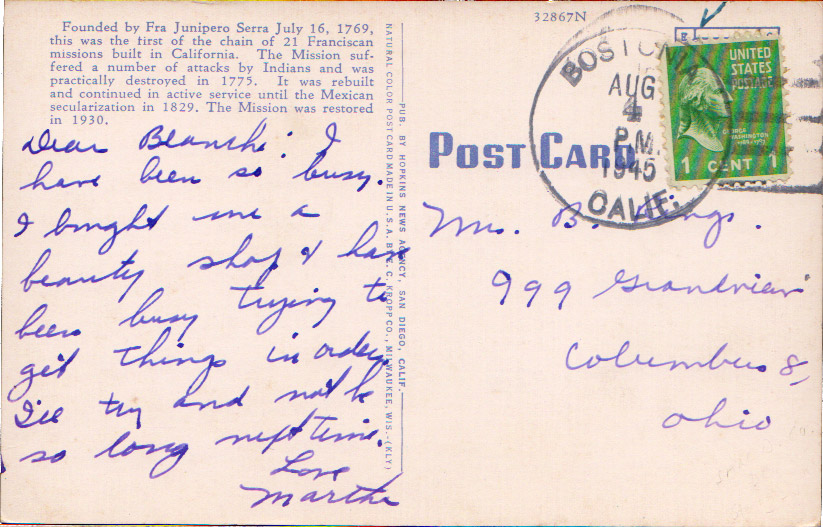 Founded by Fra Junipero Serra July 16, 1769,
this was the first of the chain of 21 Franciscan
missions built in California. The Mission suf-
fered a number of attacks by Indians and was
practically destroyed in 1775. It was rebuilt
and continued in active service until the Mexican
secularization in 1829. The Mission was restored
in 1930.
Dear Blanche: I
have been so busy.
I bought me a
beauty shop & have
been busy trying to
get things in order.
I'll try and not be
so long next time.
Love
Martha
NATURAL COLOR POST CARD MADE IN U.S.A. BY E. C. KROPP CO., MILWAUKEE, WIS.-(KLY)
PUB. BY HOPKINS NEWS AGENCY, SAN DIEGO, CALIF.
32867N
POST CARD
BOSTONIA
AUG
4
P.M.
1945
CALIF.
UNITED
STATES
POSTAGE
GEORGE
WASHINGTON
1 CENT 1
Mrs. B. Kings.
999 Grandview
Columbus 8,
Ohio